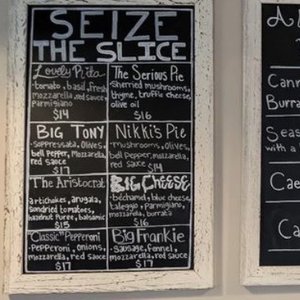 SEIZE
THE SLICE
Lovely Rita
-tomato, basil, Fresh
mozzarella, red sauce,
Parmigiano
$14
The Serious Pie
sherried mushrooms,
thyme, truffle cheese,
olive oil
$16
BIG TONY
-Soppressata, Olives,
bell Pepper, Mozzarella,
red sauce
$17
Nikki's Pie
-mushrooms, Olives,
bell pepper, Mozzarella,
red sauce $14
The Aristocrat
artichokes, arugula,
sundried tomatoes,
hazelnut puree, balsamic
$15
BIG CHEESE
-béchamel, blue cheese,
taleggio, Parmigiano,
mozzarella, burrata
$16
"Classic" Pepperoni
-Pepperoni, onions,
mozzarella, red sauce
$17
Big Frankie
-Sausage, Fennel,
Mozzarella, red Sauce
$17
Burra
Seas
with a